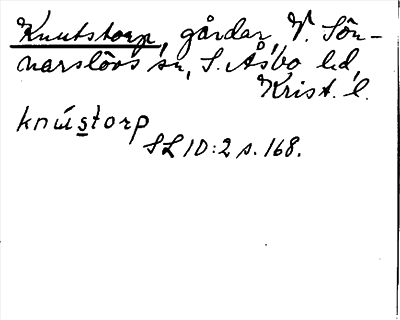 Knutstorp, gårdar, V. Sön-
narslövs sn, S. Åsbo hd,
Krist. l.
knústorp
SL 10:2 s. 168.